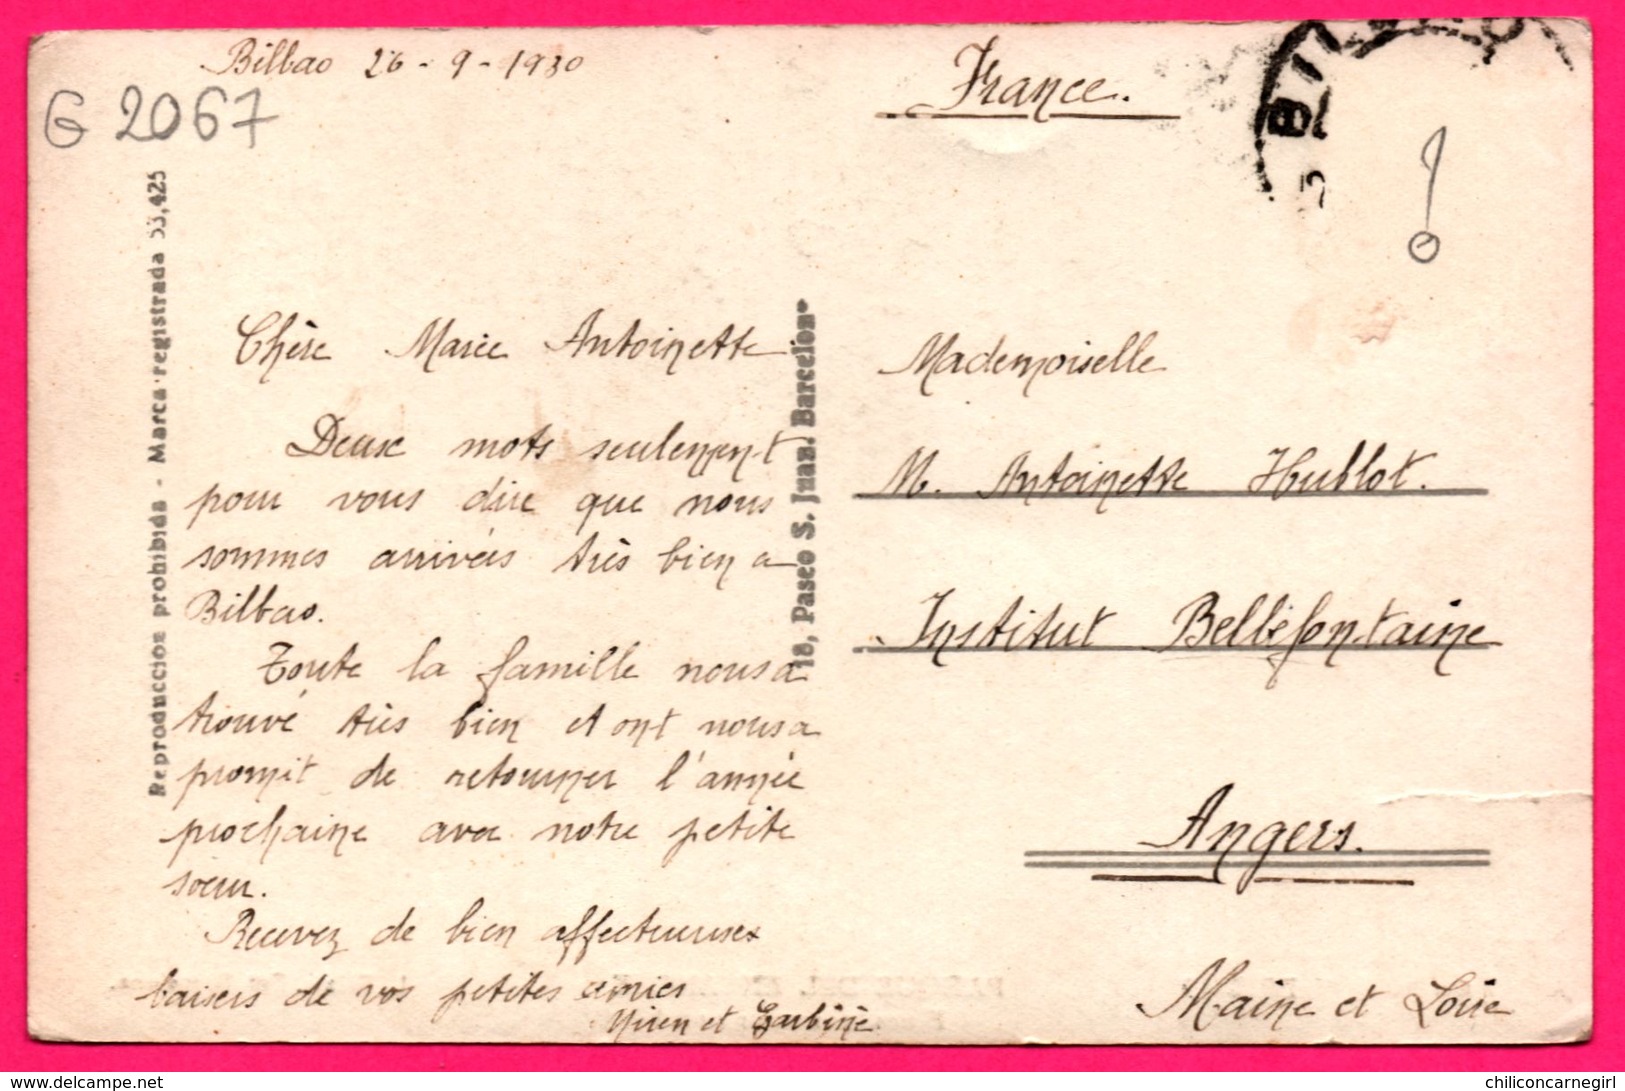 Bilbao 26-9-1930
G 2067
France.
BILBAO
Reproduccion prohibida - Marca registrada 53,425
18, Paseo S. Juan. Barcelona
Chère Marie Antoinette
Deux mots seulement
pour vous dire que nous
sommes arrivées très bien a
Bilbao.
Toute la famille nous a
trouvé très bien et ont nous a
promit de retourner l'année
prochaine avec notre petite
sœur.
Recevez de bien affectueuses
baisers de vos petites amies
Miren et Garbiñe
Mademoiselle
M. Antoinette Hublot.
Institut Bellefontaine
Angers.
Maine et Loire
delcampe.net
chiliconcarnegirl